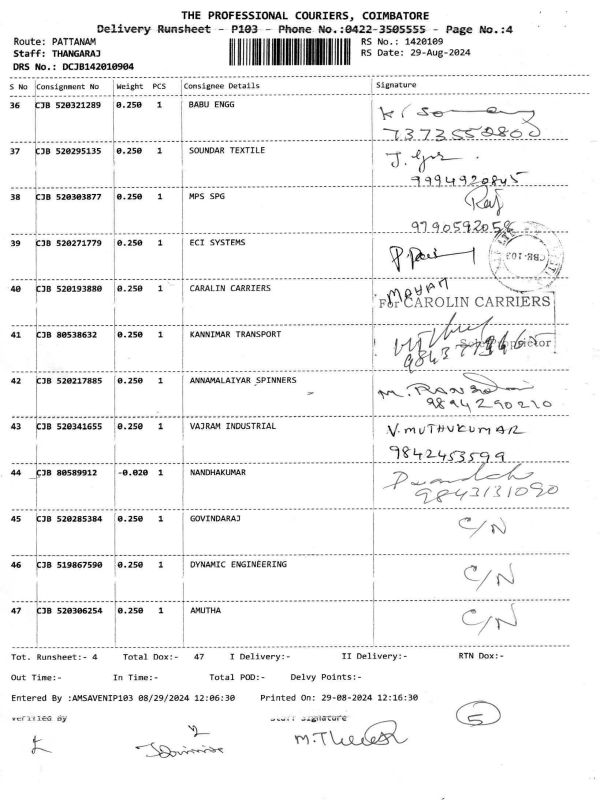 THE PROFESSIONAL COURIERS, COIMBATORE
Delivery Runsheet - P103 - Phone No.:0422-3505555 - Page No.:4
Route: PATTANAM RS No.: 1420109
Staff: THANGARAJ RS Date: 29-Aug-2024
DRS No.: DCJB142010904
S No Consignment No Weight PCS Consignee Details Signature
36 CJB 520321289 0.250 1 BABU ENGG
7373550800
37 CJB 520295135 0.250 1 SOUNDAR TEXTILE
9994920845
38 CJB 520303877 0.250 1 MPS SPG Raj
9790592058
39 CJB 520271779 0.250 1 ECI SYSTEMS
CBE-103
40 CJB 520193880 0.250 1 CARALIN CARRIERS MOHAN
For CAROLIN CARRIERS
41 CJB 80538632 0.250 1 KANNIMAR TRANSPORT
42 CJB 520217885 0.250 1 ANNAMALAIYAR SPINNERS
9894290210
43 CJB 520341655 0.250 1 VAJRAM INDUSTRIAL V. MUTHUKUMAR
9842453599
44 CJB 80589912 -0.020 1 NANDHAKUMAR
9843131090
45 CJB 520285384 0.250 1 GOVINDARAJ C/N
46 CJB 519867590 0.250 1 DYNAMIC ENGINEERING C/N
47 CJB 520306254 0.250 1 AMUTHA C/N
Tot. Runsheet:- 4 Total Dox:- 47 I Delivery:- II Delivery:- RTN Dox:-
Out Time:- In Time:- Total POD:- Delvy Points:-
Entered By :AMSAVENIP103 08/29/2024 12:06:30 Printed On: 29-08-2024 12:16:30
Verified By Staff Signature 5